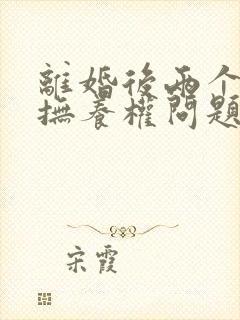 離婚後兩个
撫養權問題
宋霞